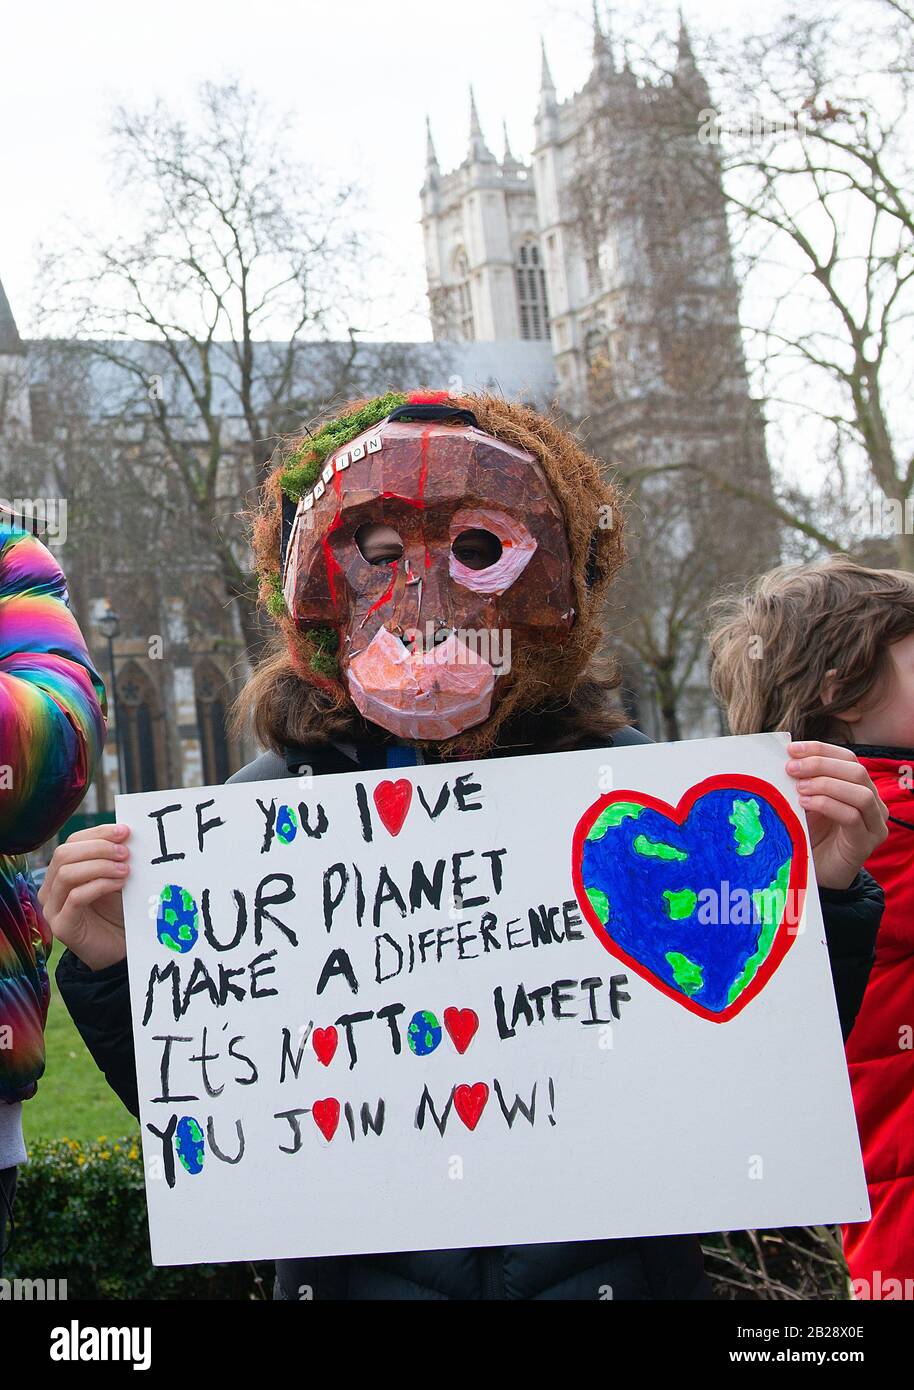 ATION
IF YOU LOVE
OUR PLANET
MAKE A DIFFERENCE
IT'S NOT TOO LATE IF
YOU JOIN NOW!
alamy
Image ID: 2B28X0E
www.alamy.com